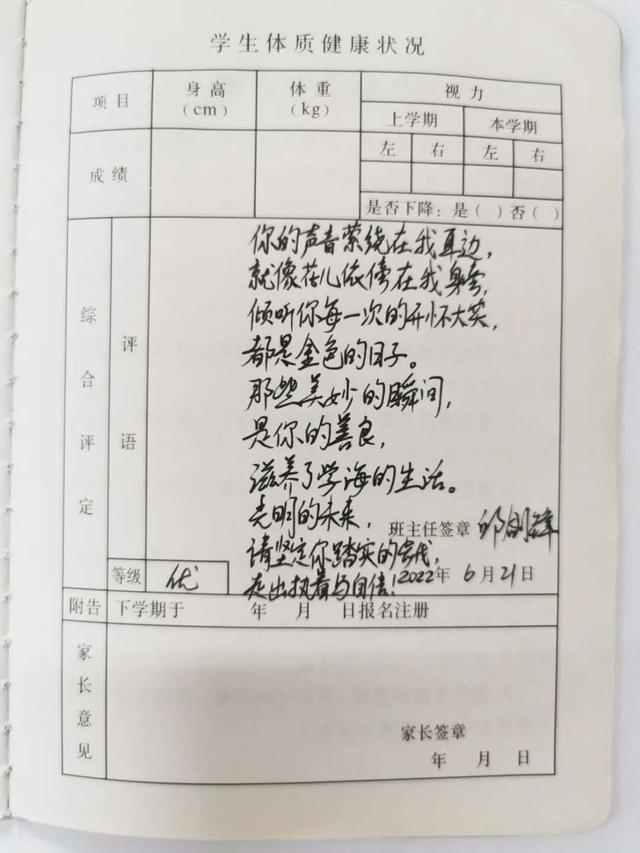 学生体质健康状况
项目 身高 (cm) 体重 (kg) 视力
上学期 本学期
左 右 左 右
成绩
是否下降：是（ ）否（ ）
综合评定
评语
你的声音萦绕在我耳边，
就像花儿依偎在我身旁，
倾听你每一次的开怀大笑，
都是金色的日子。
那些美妙的瞬间，
是你的善良，
滋养了学海的生活。
光明的未来，
班主任签章
请坚定你踏实的步伐，
走出执着与自信！
2022年 6月21日
等级 优
附告 下学期于 年 月 日报名注册
家长意见
家长签章
年 月 日